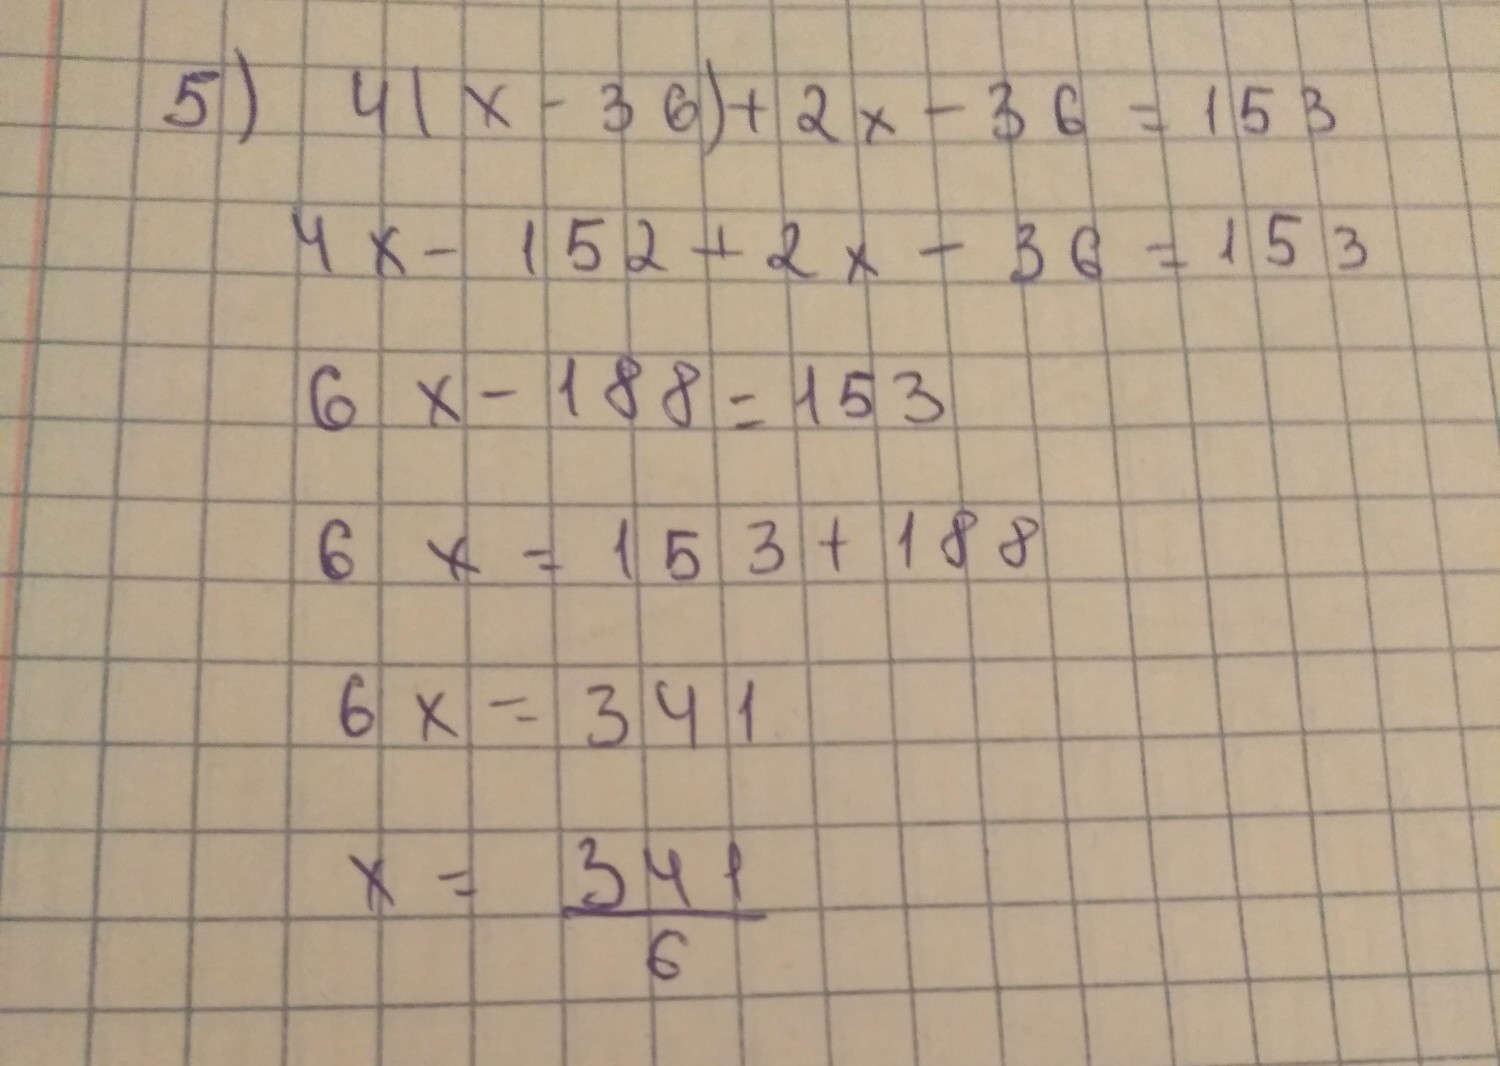 5) 4(x-36)+2x-36=153
4x-152+2x-36=153
6x-188=153
6x=153+188
6x=341
x=341/6